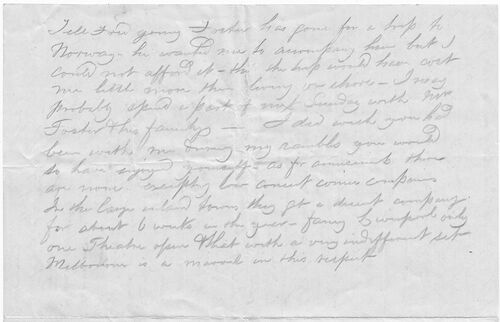 Tell Fred young Foster has gone for a trip to
Norway - he wanted me to accompany him but I
could not afford it - tho' the trip would have cost
me little more than living on shore - I may
probably spend a part of next Sunday with Mrs
Foster & his family - I did wish you had
been with me during my rambles you would
so have enjoyed yourself - as for amusement there
are none excepting low concert comic companies
In the large inland towns they get a decent company
for about 6 weeks in the year - fancy Liverpool only
one Theatre open & that with a very indifferent set
Melbourne is a marvel in this respect